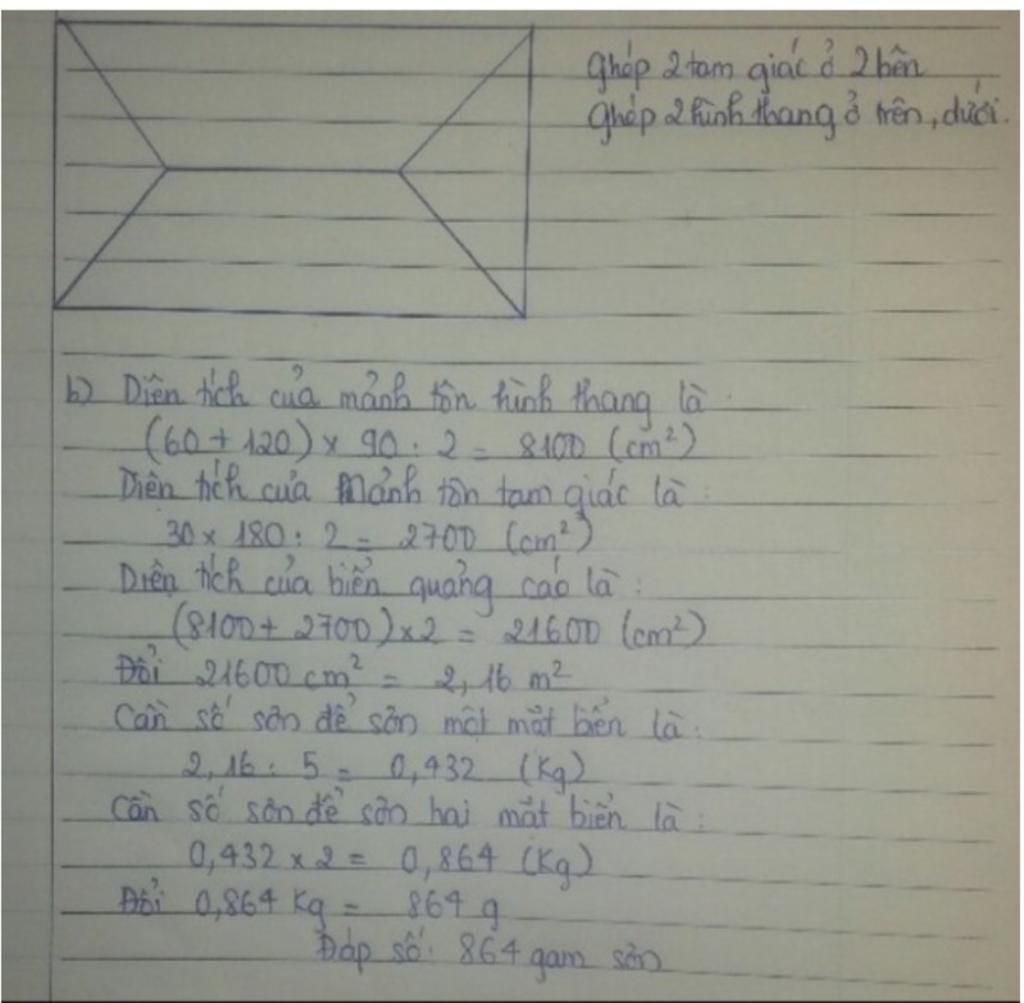 Ghép 2 tam giác ở 2 bên
Ghép 2 hình thang ở trên, dưới.
b) Diện tích của mảnh tôn hình thang là:
(60 + 120) x 90 : 2 = 8100 (cm²)
Diện tích của Mảnh tôn tam giác là:
30 x 180 : 2 = 2700 (cm²)
Diện tích của biển quảng cáo là:
(8100 + 2700) x 2 = 21600 (cm²)
Đổi 21600 cm² = 2,16 m²
Cần số sơn để sơn một mặt biển là:
2,16 : 5 = 0,432 (Kg)
Cần số sơn để sơn hai mặt biển là:
0,432 x 2 = 0,864 (Kg)
Đổi 0,864 Kg = 864 g
Đáp số: 864 gam sơn